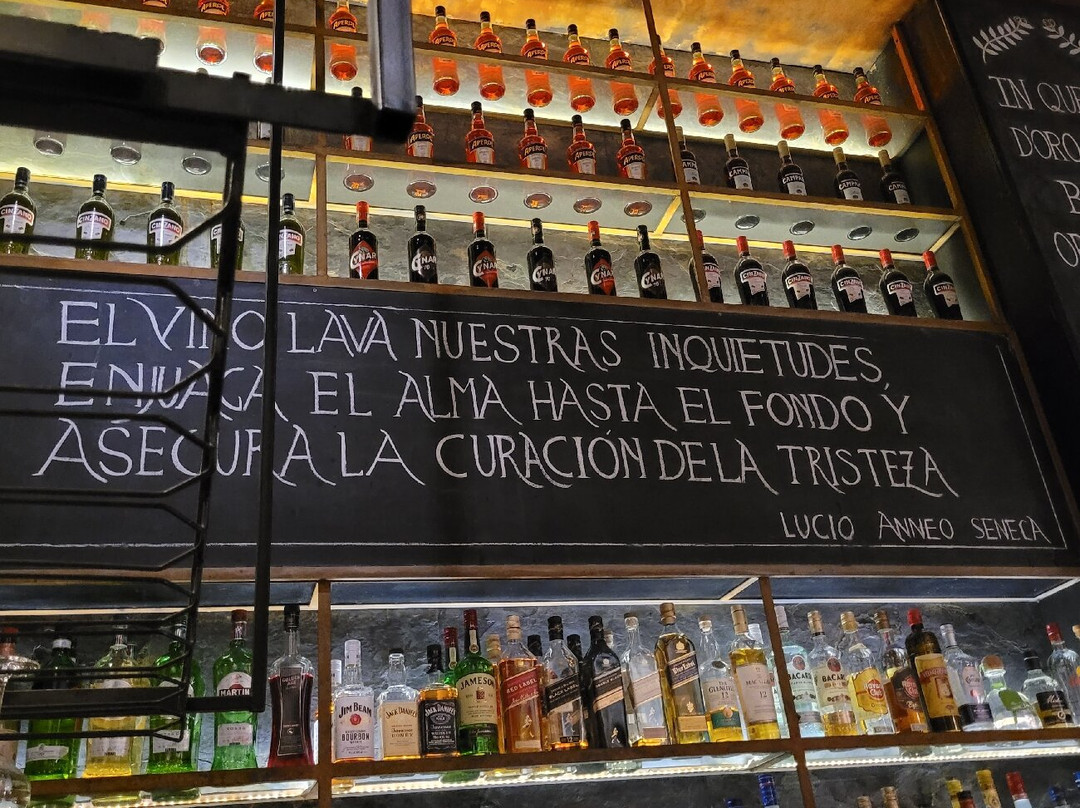 EL VINO LAVA NUESTRAS INQUIETUDES,
ENJUAGA EL ALMA HASTA EL FONDO Y
ASEGURA LA CURACIÓN DE LA TRISTEZA
LUCIO ANNEO SENECA
IN QUE
D'ORO
APEROL
CYNAR
CINZANO
MARTINI
JIM BEAM
BOURBON
JACK DANIEL'S
HONEY
JACK DANIEL'S
JAMESON
RED LABEL
BLACK LABEL
MACALLAN
12
BACARDI
BACARDI